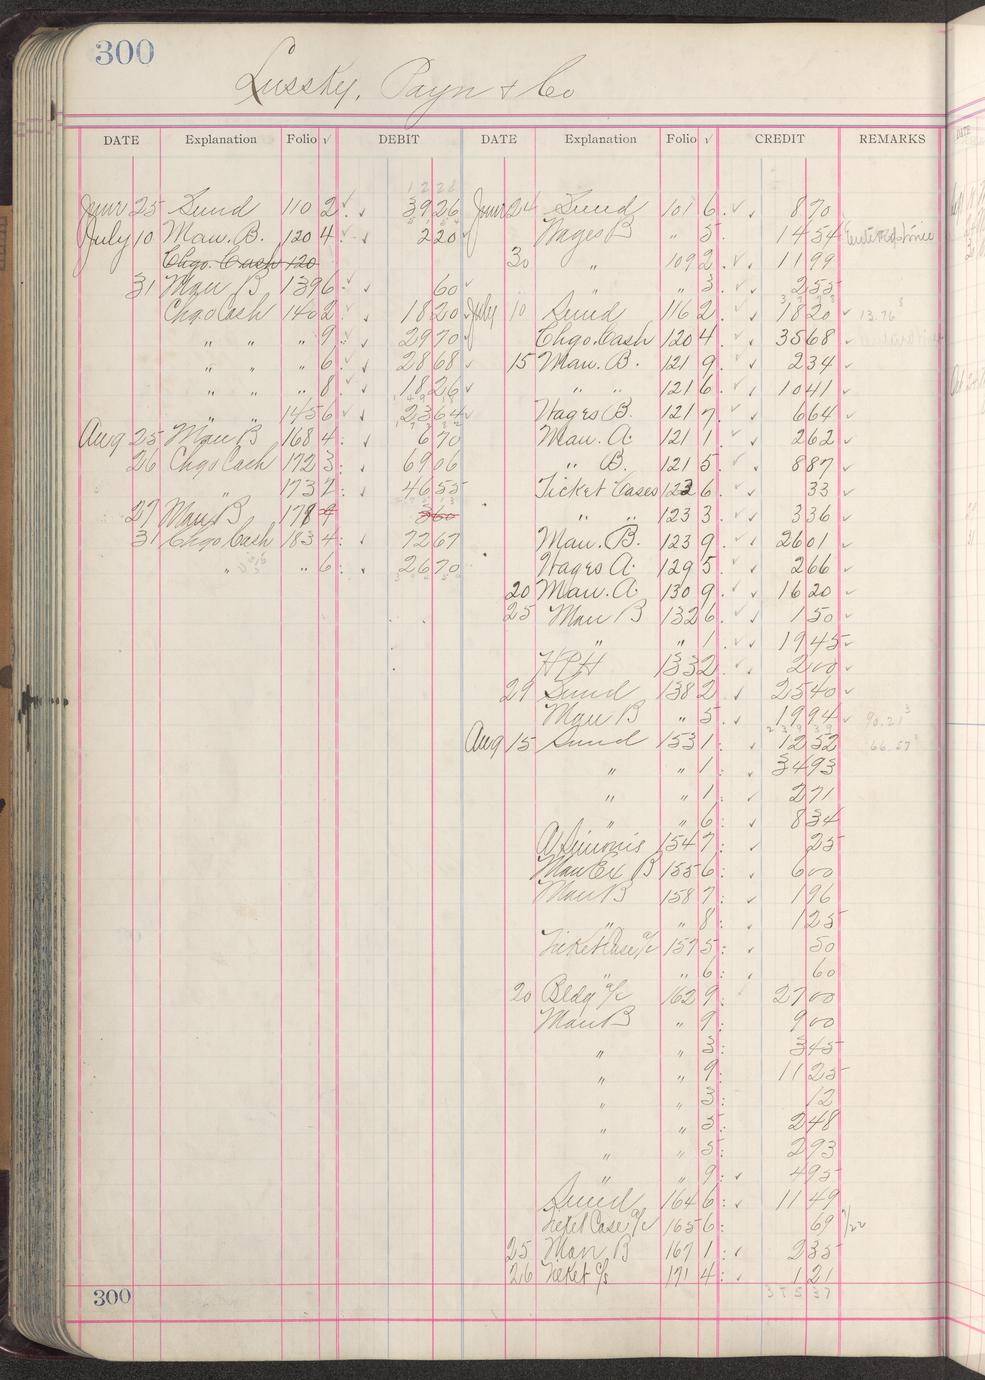 300
Lussky, Payn & Co
DATE Explanation Folio √ DEBIT DATE Explanation Folio √ CREDIT REMARKS
June 25 Sund 110 2 39 26 June 24 Sund 101 6 8 70
July 10 Man. B. 120 4 2 20 Wages B " 5 14 54
Chgo. Cash 120 30 " 109 2 11 99
31 Man B 139 6 60 " " 3 2 55
Chgo Cash 140 2 18 20 July 10 Sund 116 2 18 20 13.76
" " " 9 29 70 Chgo. Cash 120 4 35 68
" " " 6 28 68 15 Man. B. 121 9 2 34
" " " 8 18 26 " " 121 6 10 41
" " 145 6 23 64 Wages B. 121 7 6 64
Aug 25 Man B 168 4 6 70 Man. A. 121 1 2 62
26 Chgo Cash 172 3 69 06 " B. 121 5 8 87
" 173 7 46 55 Ticket Cases 123 6 33
27 Man B 178 9 3 60 " " 123 3 3 36
31 Chgo Cash 183 4 72 67 Man. B. 123 9 26 01
" " 6 26 70 Wages A. 129 5 2 66
20 Man. A. 130 9 16 20
25 Man B 132 6 1 50
" " 1 19 45
HPH 133 2 2 00
29 Sund 138 2 25 40
Man B " 5 19 94 90.21
Aug 15 Sund 153 1 12 52 66.57
" " 1 34 93
" " 1 2 71
" " 6 8 34
A Simonis 154 7 25
Man Ex B 155 6 6 00
Man B 158 7 1 96
" " 8 1 25
Ticket Case a/c 157 5 50
" " 6 60
20 Bldg a/c 162 9 27 00
Man B " 9 9 00
" " 3 3 45
" " 9 11 25
" " 3 12
" " 5 2 48
" " 5 2 93
" " 9 4 95
Sund 164 6 11 49
Ticket Case a/c 165 6 69
25 Man B 167 1 2 35
26 Ticket c/s 171 4 1 21
300